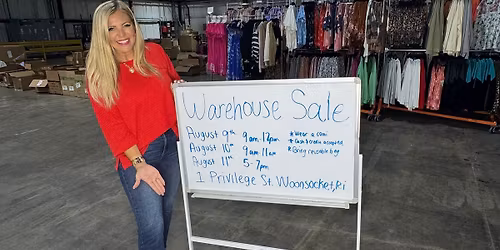 Warehouse Sale
August 9th 9am-12pm
August 10th 9am-11am
August 11th 5-7pm
*Wear a cami
*Cash & credit accepted
*Bring reusable bag
1 Privilege St. Woonsocket, Ri